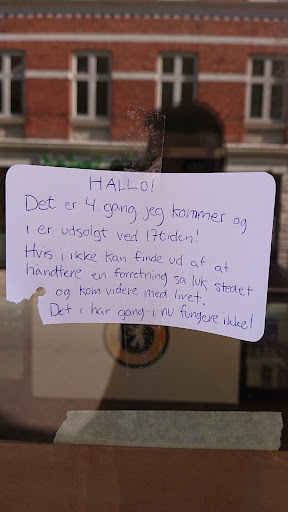 HALLO!
Det er 4. gang jeg kommer og
i er udsolgt ved 17tiden!
Hvis i ikke kan finde ud af at
håndtere en forretning så luk stedet
og kom videre med livet.
Det i har gang i nu fungere ikke!